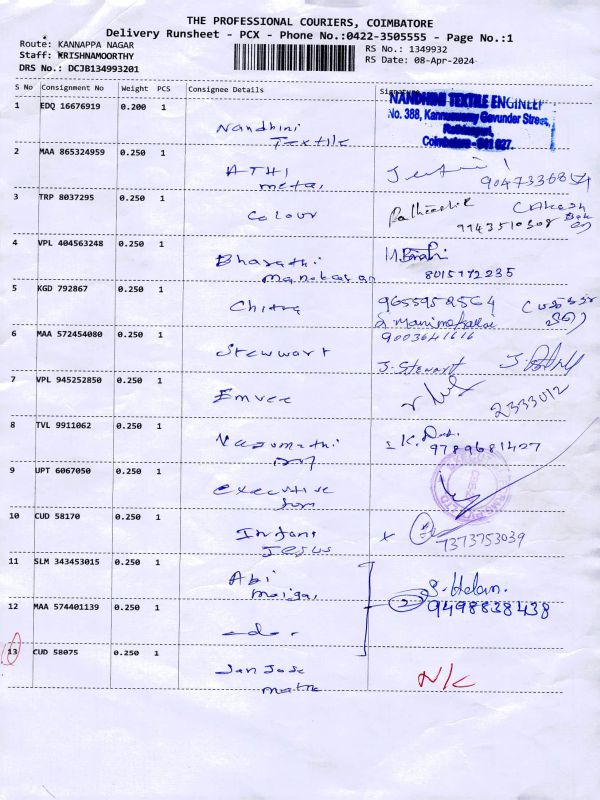 THE PROFESSIONAL COURIERS, COIMBATORE
Delivery Runsheet - PCX - Phone No.:0422-3505555 - Page No.:1
Route: KANNAPPA NAGAR
Staff: KRISHNAMOORTHY
DRS No.: DCJB134993201
RS No.: 1349932
RS Date: 08-Apr-2024
S No Consignment No Weight PCS Consignee Details Signature
NANDHINI TEXTILE ENGINEER
No. 388, Kannuswamy Gavunder Street,
Rathinapuri,
Coimbatore - 641 027.
1 EDQ 16676919 0.200 1
Nandhini
Textile
2 MAA 865324959 0.250 1
ATHI
metal
9047336854
3 TRP 8037295 0.250 1
Colour
9943510308
4 VPL 404563248 0.250 1
Bharathi
manokaran
8015172235
5 KGD 792867 0.250 1
Chitra
9655952564
9003641616
6 MAA 572454080 0.250 1
Stewwart
J. Stewart
7 VPL 945252850 0.250 1
Emvee
2333012
8 TVL 9911062 0.250 1
Vasumathi
9789681427
9 UPT 6067050 0.250 1
executive
10 CUD 58170 0.250 1
Infant
Jesus
x
7373753039
11 SLM 343453015 0.250 1
Abi
S. Helan.
2 9498838438
12 MAA 574401139 0.250 1
-do-
13 CUD 58075 0.250 1
Jan Jose
N/C